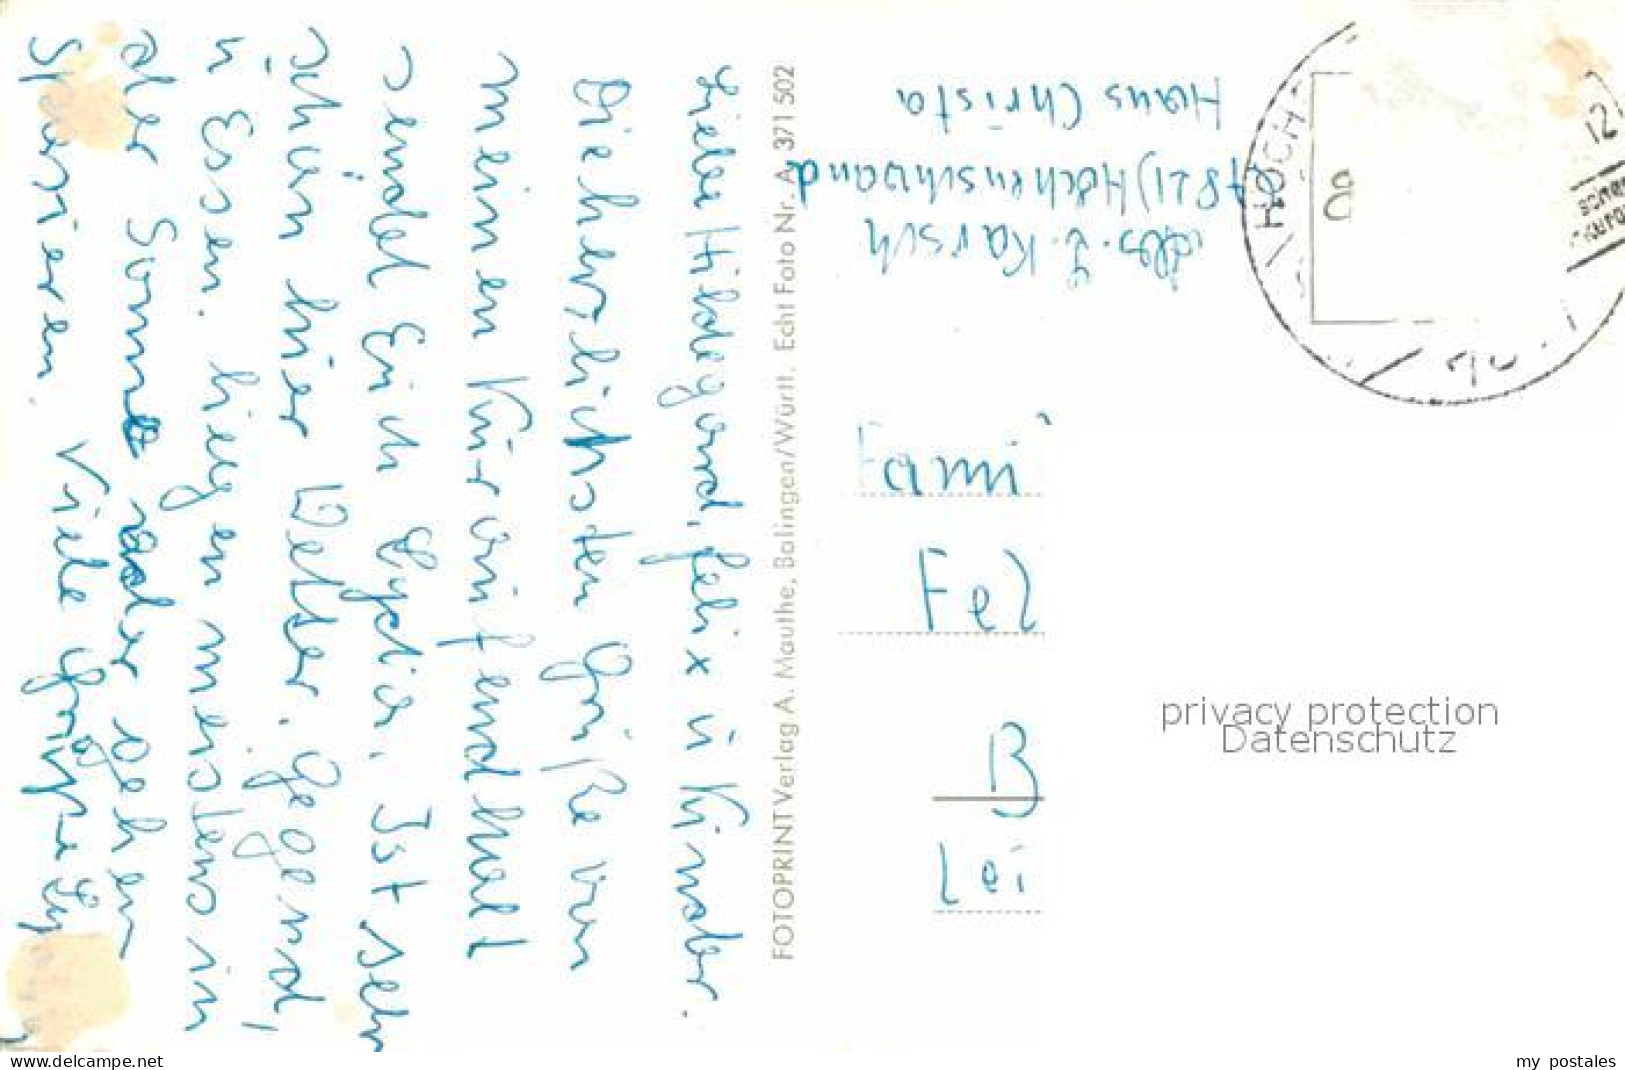 Liebe Hildegard, Felix u Kinder.
Die herzlichsten Grüße von
meinen Kuraufenthalt
sendet Euch Lydia. Ist sehr
schön hier Wetter. Gegend,
u Essen. Liegen meistens in
der Sonne oder gehen
spazieren. Viele Grüße Ly
FOTOPRINT Verlag A. Mauthe, Balingen/Württ. Echt Foto Nr. A. 371 502
Abs. L. Karsch
7821) Höchenschwand
Haus Christa
HÖCH
12
Fami
Fel
B
Lei
privacy protection
Datenschutz
www.delcampe.net
my_postales